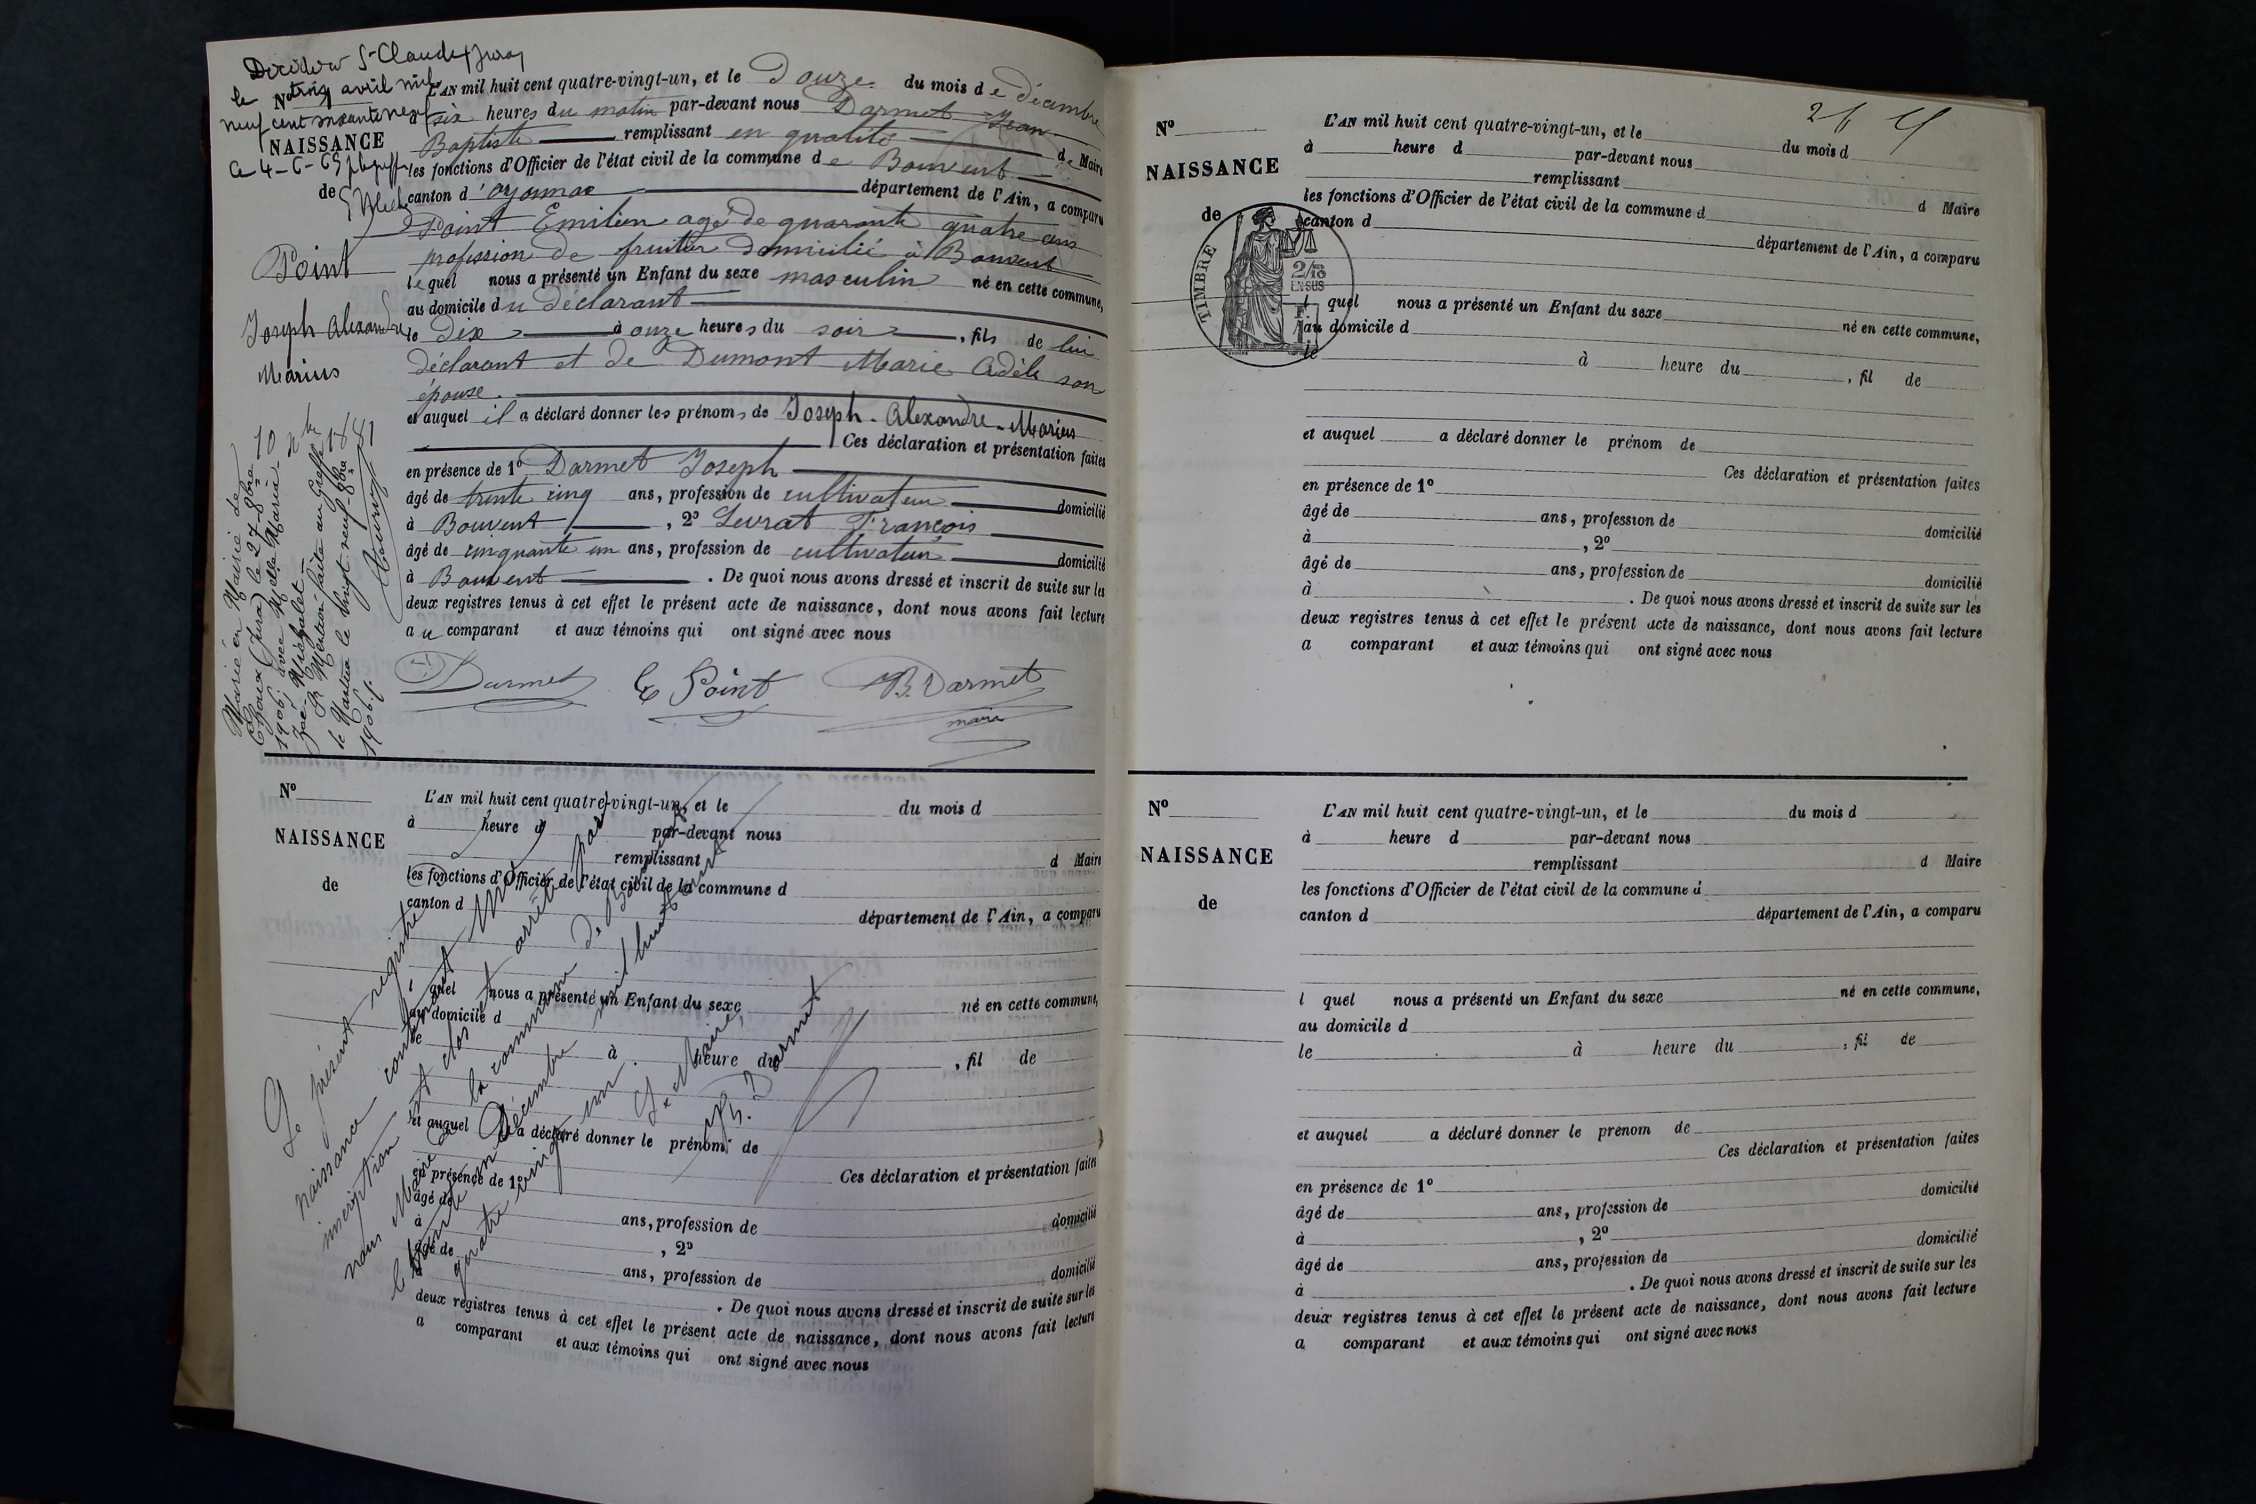 Décédé à St-Claude (Jura)
le trois avril mil
neuf cent soixante neuf
Nº
NAISSANCE
Ce 4-6-69
de
Point
Joseph Alexandre
Marius
L'AN mil huit cent quatre-vingt-un, et le Douze du mois de décembre
à six heures du matin par-devant nous Darmet Jean
Baptiste remplissant en qualité de Maire
les fonctions d'Officier de l'état civil de la commune de Bouvent
canton d'oyonnax département de l'Ain, a comparu
Point Emilien agé de quarante quatre ans
profession de fruitier domicilié à Bouvent
lequel nous a présenté un Enfant du sexe masculin né en cette commune,
au domicile du déclarant
le dix à onze heures du soir, fils de lui
déclarant et de Dumont Marie Adèle son
épouse.
et auquel il a déclaré donner les prénoms de Joseph-Alexandre-Marius
Ces déclaration et présentation faites
en présence de 1º Darmet Joseph
âgé de trente cinq ans, profession de cultivateur domicilié
à Bouvent, 2º Levrat François
âgé de cinquante un ans, profession de cultivateur domicilié
à Bouvent. De quoi nous avons dressé et inscrit de suite sur les
deux registres tenus à cet effet le présent acte de naissance, dont nous avons fait lecture
au comparant et aux témoins qui ont signé avec nous
Darmet E Point B. Darmet
maire
10 Xbre 1881
Marié en Mairie de
Choux (Jura) le 27 8bre
1906, avec Melle Maria
Zoé Michalet.
P. Mention faite au Greffe
le Nantua le vingt neuf 8bre
1906.
Nº
NAISSANCE
de
L'AN mil huit cent quatre-vingt-un, et le du mois d
à heure d par-devant nous
remplissant d Maire
les fonctions d'Officier de l'état civil de la commune d
canton d département de l'Ain, a comparu
l quel nous a présenté un Enfant du sexe né en cette commune,
au domicile d
le à heure du, fil de
et auquel a déclaré donner le prénom de
Ces déclaration et présentation faites
en présence de 1º
âgé de ans, profession de domicilié
à, 2º
âgé de ans, profession de domicilié
à. De quoi nous avons dressé et inscrit de suite sur les
deux registres tenus à cet effet le présent acte de naissance, dont nous avons fait lecture
a comparant et aux témoins qui ont signé avec nous
Le présent registre
naissance contenant
inscription est clos et arrêté par
nous Maire de la commune de Bouvent
le Décembre mil huit cent
quatre vingt un.
Le Maire,
B. Darmet
26
Nº
NAISSANCE
de
TIMBRE
2/10
EN SUS
L'AN mil huit cent quatre-vingt-un, et le du mois d
à heure d par-devant nous
remplissant d Maire
les fonctions d'Officier de l'état civil de la commune d
canton d département de l'Ain, a comparu
l quel nous a présenté un Enfant du sexe né en cette commune,
au domicile d
le à heure du, fil de
et auquel a déclaré donner le prénom de
Ces déclaration et présentation faites
en présence de 1º
âgé de ans, profession de domicilié
à, 2º
âgé de ans, profession de domicilié
à. De quoi nous avons dressé et inscrit de suite sur les
deux registres tenus à cet effet le présent acte de naissance, dont nous avons fait lecture
a comparant et aux témoins qui ont signé avec nous
Nº
NAISSANCE
de
L'AN mil huit cent quatre-vingt-un, et le du mois d
à heure d par-devant nous
remplissant d Maire
les fonctions d'Officier de l'état civil de la commune d
canton d département de l'Ain, a comparu
l quel nous a présenté un Enfant du sexe né en cette commune,
au domicile d
le à heure du, fil de
et auquel a déclaré donner le prenom de
Ces déclaration et présentation faites
en présence de 1º
âgé de ans, profession de domicilié
à, 2º
âgé de ans, profession de domicilié
à. De quoi nous avons dressé et inscrit de suite sur les
deux registres tenus à cet effet le présent acte de naissance, dont nous avons fait lecture
a comparant et aux témoins qui ont signé avec nous